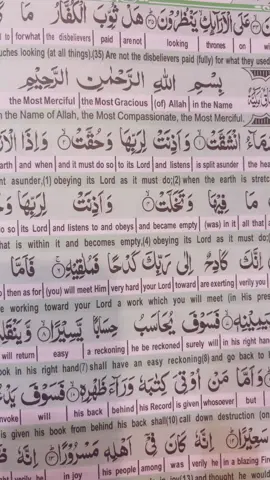 عَلَى الْاَرَآئِكِ يَنْظُرُوْنَ ﴿٣٥﴾ هَلْ ثُوِّبَ الْكُفَّارُ مَا
to forwhat the disbelievers paid are not looking thrones on
uches looking (at all things).(35) Are not the disbelievers paid (fully) for what they used
بِسْمِ اللهِ الرَّحْمٰنِ الرَّحِيْمِ
the Most Merciful the Most Gracious (of) Allah in the Name
n the Name of Allah, the Most Compassionate, the Most Merciful.
انْشَقَّتْ ﴿١﴾ وَاَذِنَتْ لِرَبِّهَا وَحُقَّتْ ﴿٢﴾ وَاِذَا
earth and when and it must do so to its Lord and listens is split asunder the hea
nt asunder,(1) obeying its Lord as it must do;(2) when the earth is stretch
مَا فِيْهَا وَتَخَلَّتْ ﴿٤﴾ وَاَذِنَتْ لِرَبِّهَا
o so its Lord and listens to and obeys and became empty (was) in it all that
hat is within it and becomes empty,(4) obeying its Lord as it must do;
اِنَّكَ كَادِحٌ اِلٰى رَبِّكَ كَدْحًا فَمُلٰقِيْهِ ﴿٦﴾ فَاَمَّا
then as for (you) will meet Him very hard your Lord toward are exerting verily you
e working toward your Lord a work which you will meet (in His pres
فَسَوْفَ يُحَاسَبُ حِسَابًا يَّسِيْرًا ﴿٨﴾
will return easy a reckoning he be reckoned surely will in his right hand
ook in his right hand(7) shall have an easy reckoning(8) and go back to
وَاَمَّا مَنْ اُوْتِيَ كِتٰبَهٗ وَرَآءَ ظَهْرِهٖ ﴿١٠﴾ فَسَوْفَ
nvoke will his back behind his Record is given whosoever but
is given his book from behind his back shall(10) call down destruction (on
اِنَّهٗ كَانَ فِيْٓ اَهْلِهٖ مَسْرُوْرًا ﴿١٣﴾ اِنَّهٗ
in joy his people among was verily he in a blazing Fire